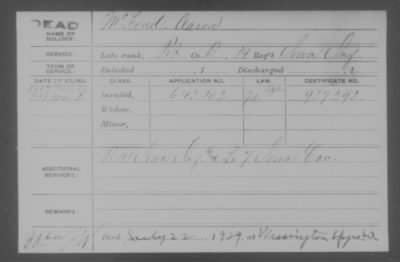 DEAD
NAME OF SOLDIER:
McLoud, Aaron
SERVICE:
Late rank, Pvt Co B, 14 Reg't Iowa Inf.
TERM OF SERVICE:
Enlisted , 1 Discharged , 1
DATE OF FILING. CLASS. APPLICATION NO. LAW. CERTIFICATE NO.
Invalid, 643,102 927,292.
Widow,
Minor,
ADDITIONAL SERVICES:
Iowa Inf & L 7 Iowa Cav.
REMARKS:
Died July 22, 1929, at Wessington Spgs S.D.